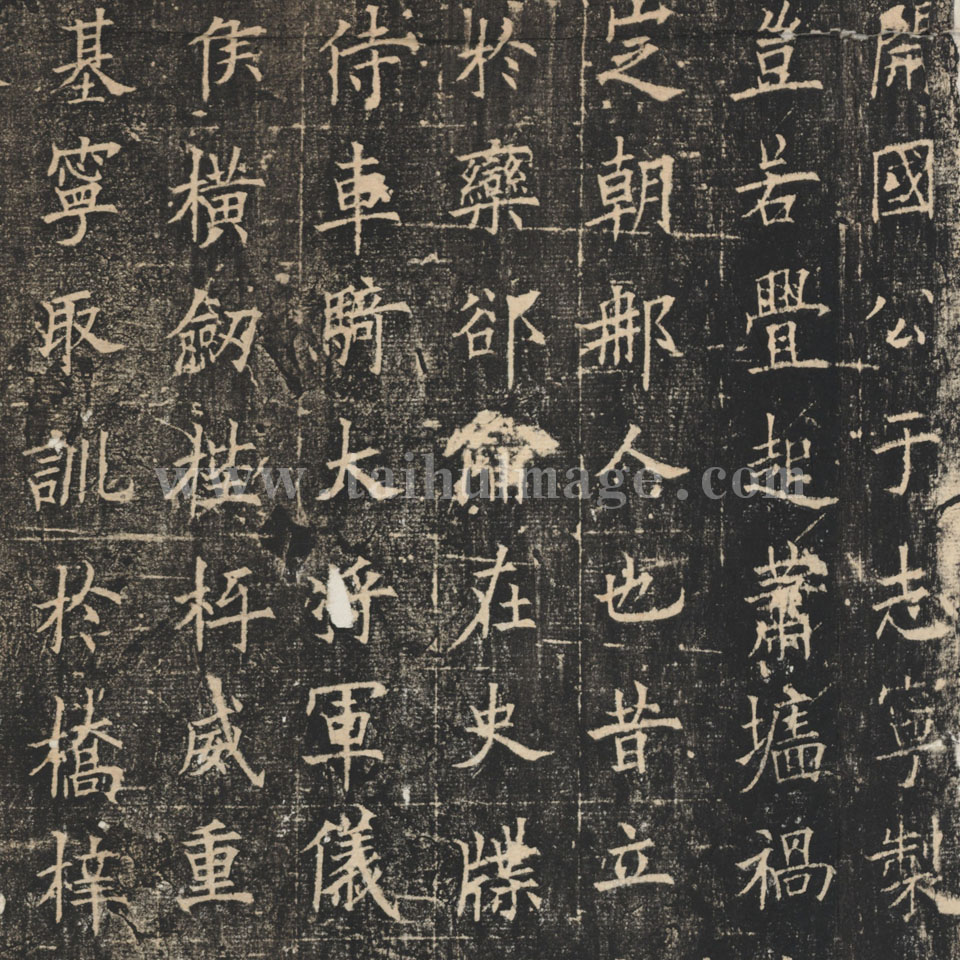 開國公于志寧製
豈若舋起蕭墻禍
㝎朝那人也昔立
於欒郤在史牒
侍車騎大將軍儀
侯橫劔威重
基寧取訓於橋梓
www.taihuimage.com